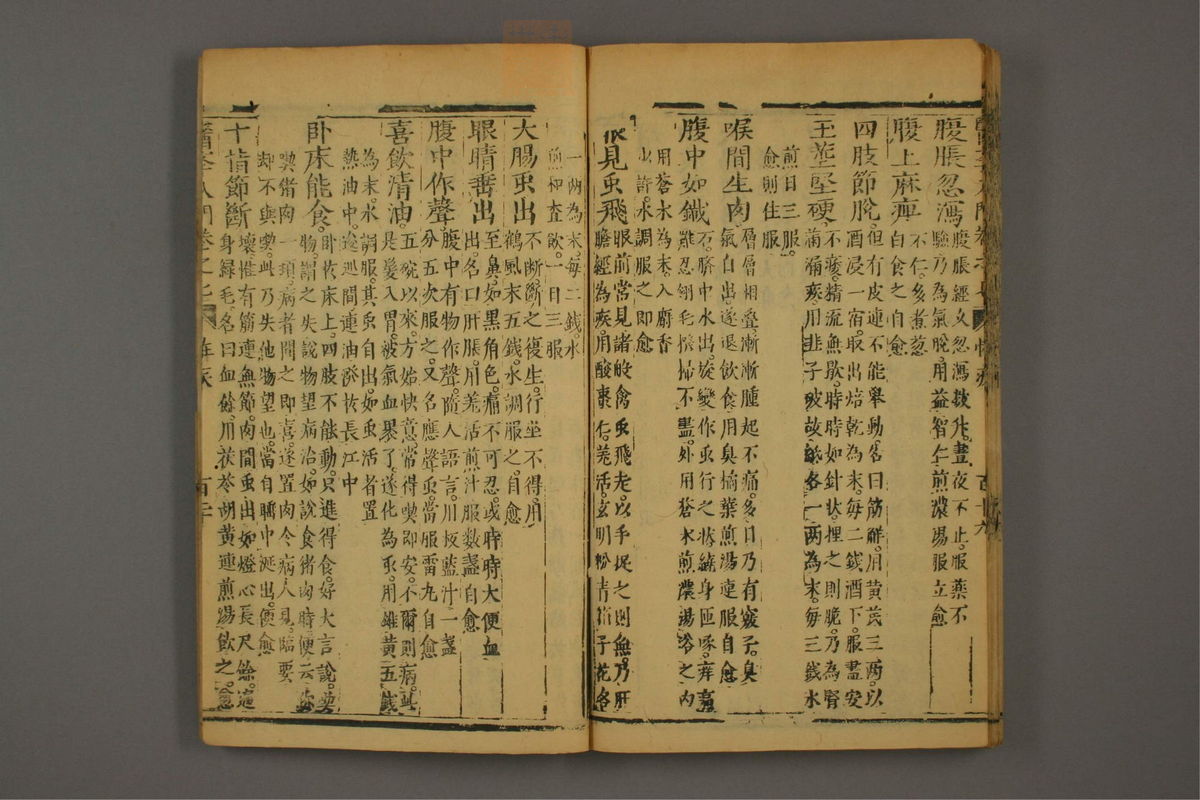 腹脹忽瀉 腹脹經久忽瀉數升晝夜不止服藥不
驗乃為氣脫用益智仁煎濃湯服立愈
腹上麻痺 不仁多煮葱
白食之自愈
四肢節脫 但有皮連不能舉動名曰筋解用黃芪三兩以
酒浸一宿取出焙乾為末每二錢酒下服盡安
玉莖堅硬 不痿精流無歇時時如針狀捏之則脆乃為腎
滿漏疾用韭子破故紙各一兩為末每三錢水
煎日三服
愈則住服
喉間生肉 層層相疊漸漸腫起不痛多日乃有竅子臭
氣白出遂退飲食用臭橘葉煎湯連服自愈
腹中如鐵 石臍中水出旋變作虫行之狀繞身匝啄痒
難忍翎毛撥掃不盡外用蒼朮煎濃湯浴之內
用蒼朮為末入麝香
少許水調服之即愈
眼見虫飛 眼前常見諸般禽虫飛走以手捉之則無乃肝
膽經為疾用酸棗仁羌活玄明粉青箱子花各
一兩為末每二錢水
煎和查飲一日三服
大腸虫出 不斷斷之復生行坐不得用
鶴風末五錢水調服之自愈
眼睛垂出 至鼻如黑角色痛不可忍或時時大便血
出名曰肝脹用羌活煎汁服數盞自愈
腹中作聲 腹中有物作聲隨人語言用板藍汁一盞
分五次服之又名應聲虫當服雷丸自愈
喜飲清油 五碗以來方始快意常得喫即安不爾則病此
是髮入胃被氣血裹了遂化為虫用雄黃五錢
為末水調服其虫自出如虫活者置
熱油中逡巡間連油潑放長江中
臥床能食 臥依床上四肢不能動只進得食好大言說喫
物謂之失說物望病治如說食猪肉時便云
喫猪肉一頓病者聞之即喜遂置肉令病人見臨要
却不與喫此乃失他物望也當自睡中涎出便愈
十指節斷 壞惟有筋連無節肉間虫出如燈心長尺餘遍
身綠毛名曰血餘用茯苓胡黃連煎湯飲之愈